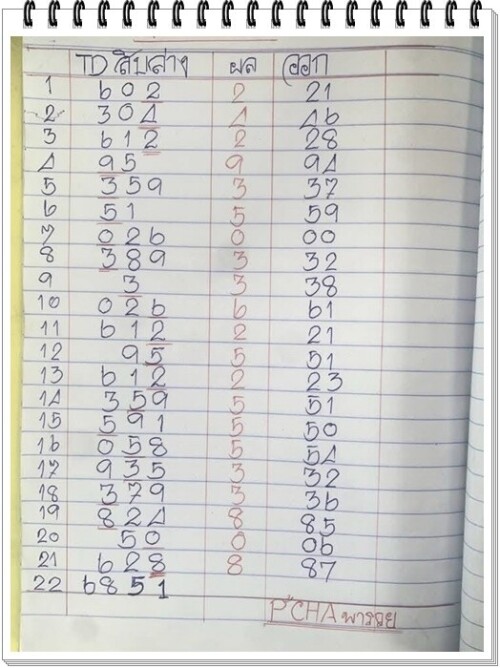 TD สิบล่าง ผล ออก
1 602 2 21
2 304 4 46
3 612 2 28
4 95 9 94
5 359 3 37
6 51 5 59
7 026 0 00
8 389 3 32
9 3 3 38
10 026 6 61
11 612 2 21
12 95 5 51
13 612 2 23
14 359 5 51
15 591 5 50
16 058 5 54
17 935 3 32
18 379 3 36
19 824 8 85
20 50 0 06
21 628 8 87
22 6851
P"CHA พารวย